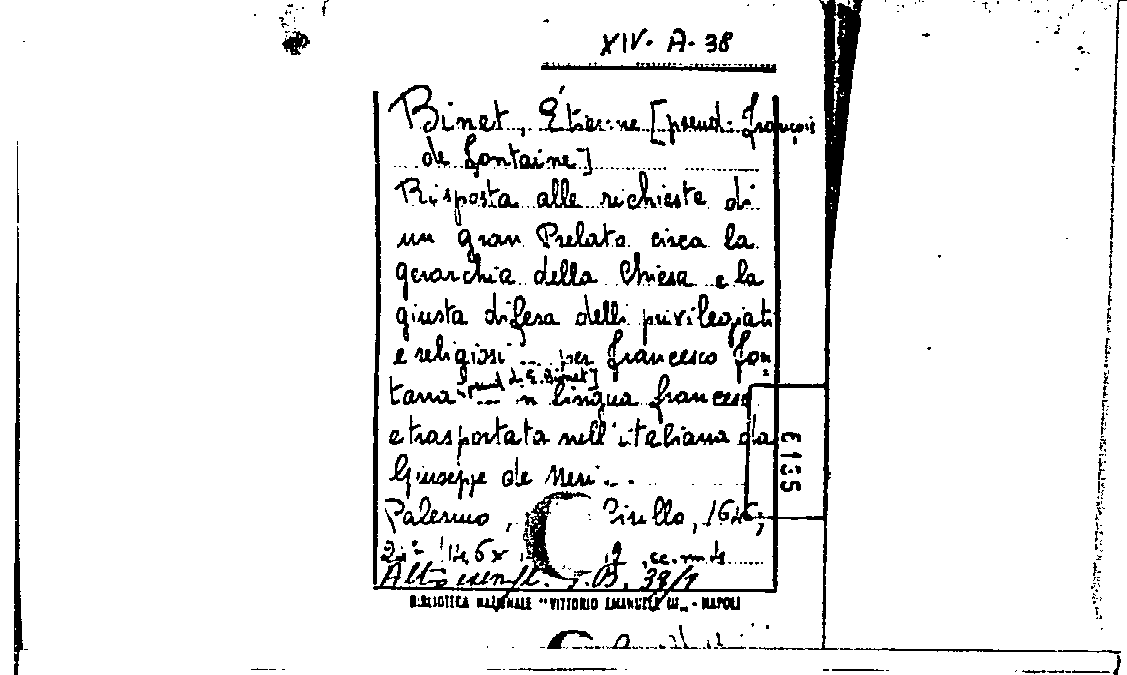 XIV. A. 38
Binet, Étienne [pseud. François
de Fontaine]
Risposta alle richieste di
un gran Prelato circa la
gerarchia della Chiesa e la
giusta difesa delli privilegiati
e religiosi ... per Francesco Fon
tana [pseud. di E. Binet]
... in lingua francese
e trasportata nell'italiana da
Giuseppe de Neri ...
Palermo, Cirillo,
Altro esempl. B. 38/1
BIBLIOTECA NAZIONALE "VITTORIO EMANUELE III" - NAPOLI
E 135